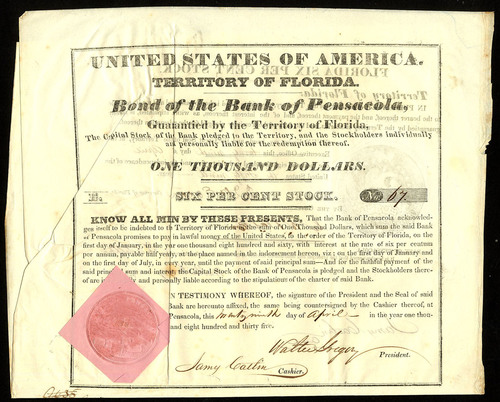 UNITED STATES OF AMERICA.
TERRITORY OF FLORIDA.
Bond of the Bank of Pensacola,
Guarantied by the Territory of Florida,
The Capital Stock of the Bank pledged to the Territory, and the Stockholders individually
and personally liable for the redemption thereof.
ONE THOUSAND DOLLARS.
E. SIX PER CENT STOCK. No 67
KNOW ALL MEN BY THESE PRESENTS, That the Bank of Pensacola acknowled-
ges itself to be indebted to Territory of Florida in the sum of One Thousand Dollars, which sum the said Bank
of Pensacola promises to pay in lawful money of the United States, to the order of the Territory of Florida, on the
first day of January, in the year one thousand eight hundred and sixty, with interest at the rate of six per centum
per annum, payable half yearly, at the place named in the indorsement hereon, viz: on the first day of January and
on the first day of July, in every year, until the payment of said principal sum—And for the faithful payment of the
said principal sum and interest the Capital Stock of the Bank of Pensacola is pledged and the Stockholders there-
of are individually and personally liable according to the stipulations of the charter of said Bank.
IN TESTIMONY WHEREOF, the signature of the President and the Seal of said
Bank are hereunto affixed, the same being countersigned by the Cashier thereof, at
Pensacola, this twenty ninth day of April in the year one thou-
sand eight hundred and thirty five.
Walter Gregory President.
Jamy Catlin Cashier.